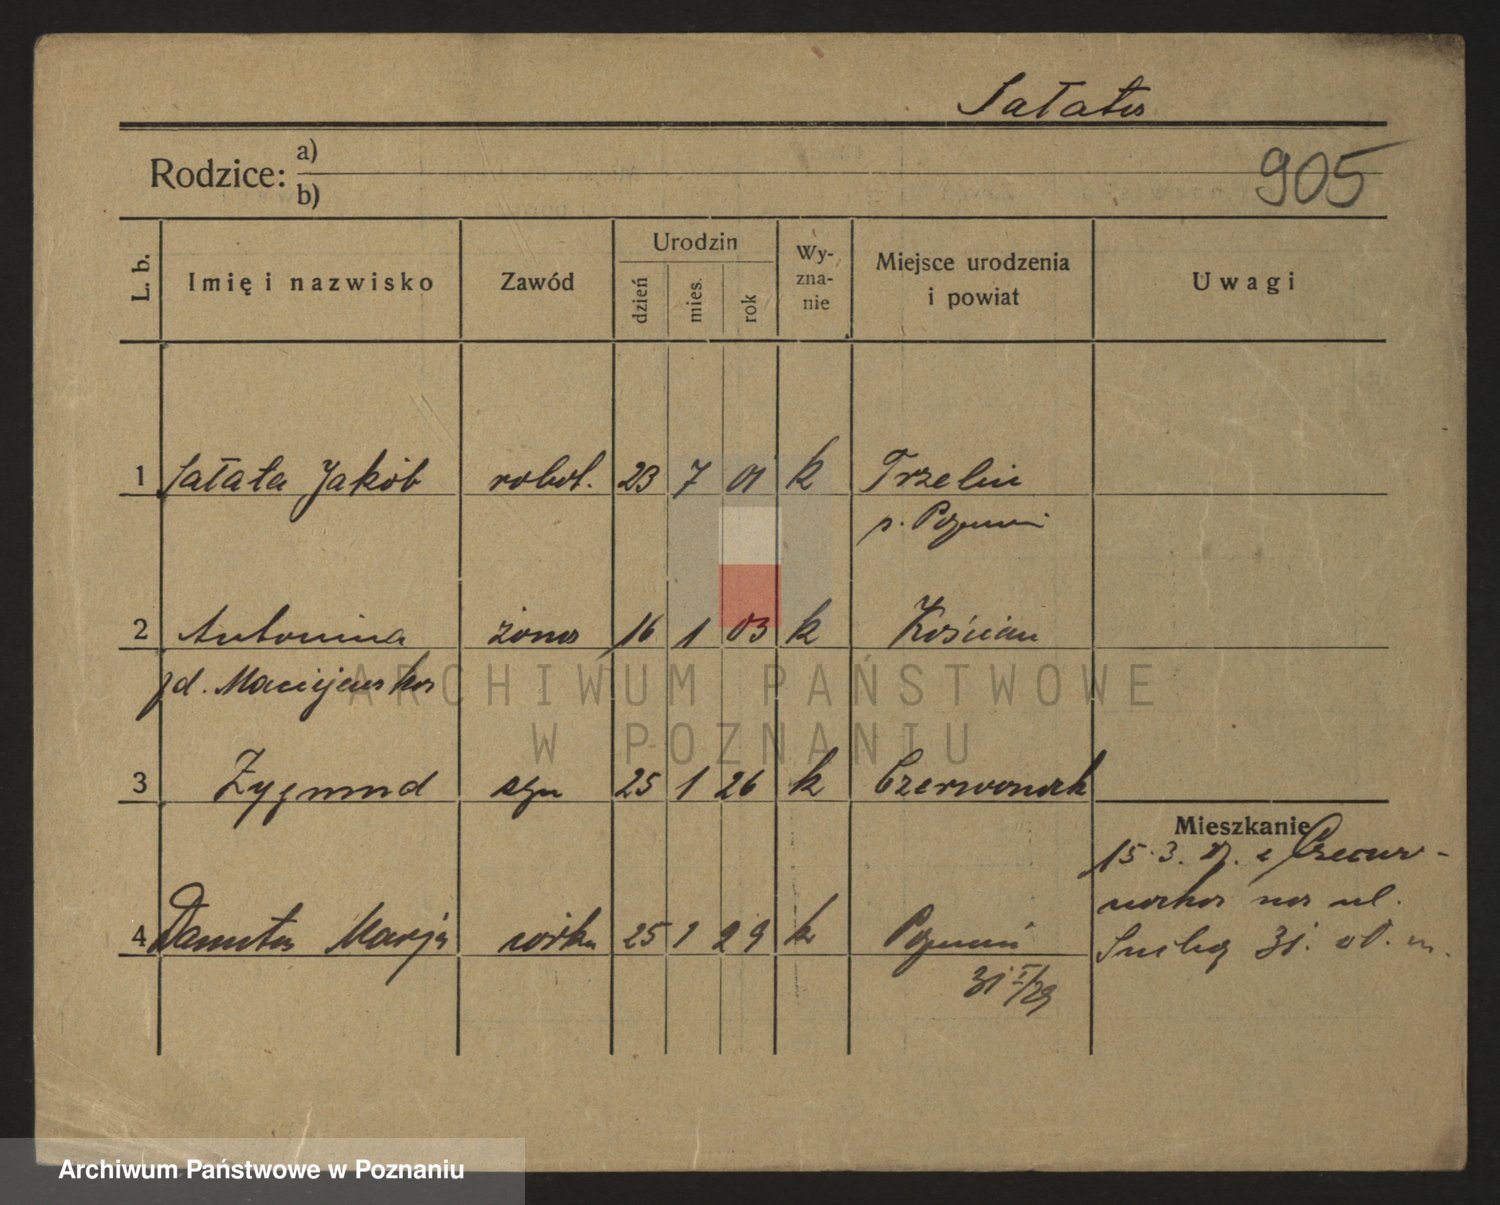 Sałata
905
Rodzice: a)
b)
L. b. Imię i nazwisko Zawód Urodzin dzień mies. rok Wy-zna-nie Miejsce urodzenia i powiat Uwagi
1 Sałata Jakób robot. 23 7 01 k
p. Poznań
2 Antonina żona 16 1 03 k Kościan
Maciejewska
3 Zygmund syn 25 1 26 k Czerwonak
Mieszkanie
15.3. z Czerwo-
naka na ul.
4 Danuta Marja córka 25 1 29 k Poznań
31.
31 I/29
ARCHIWUM PAŃSTWOWE
W POZNANIU
Archiwum Państwowe w Poznaniu